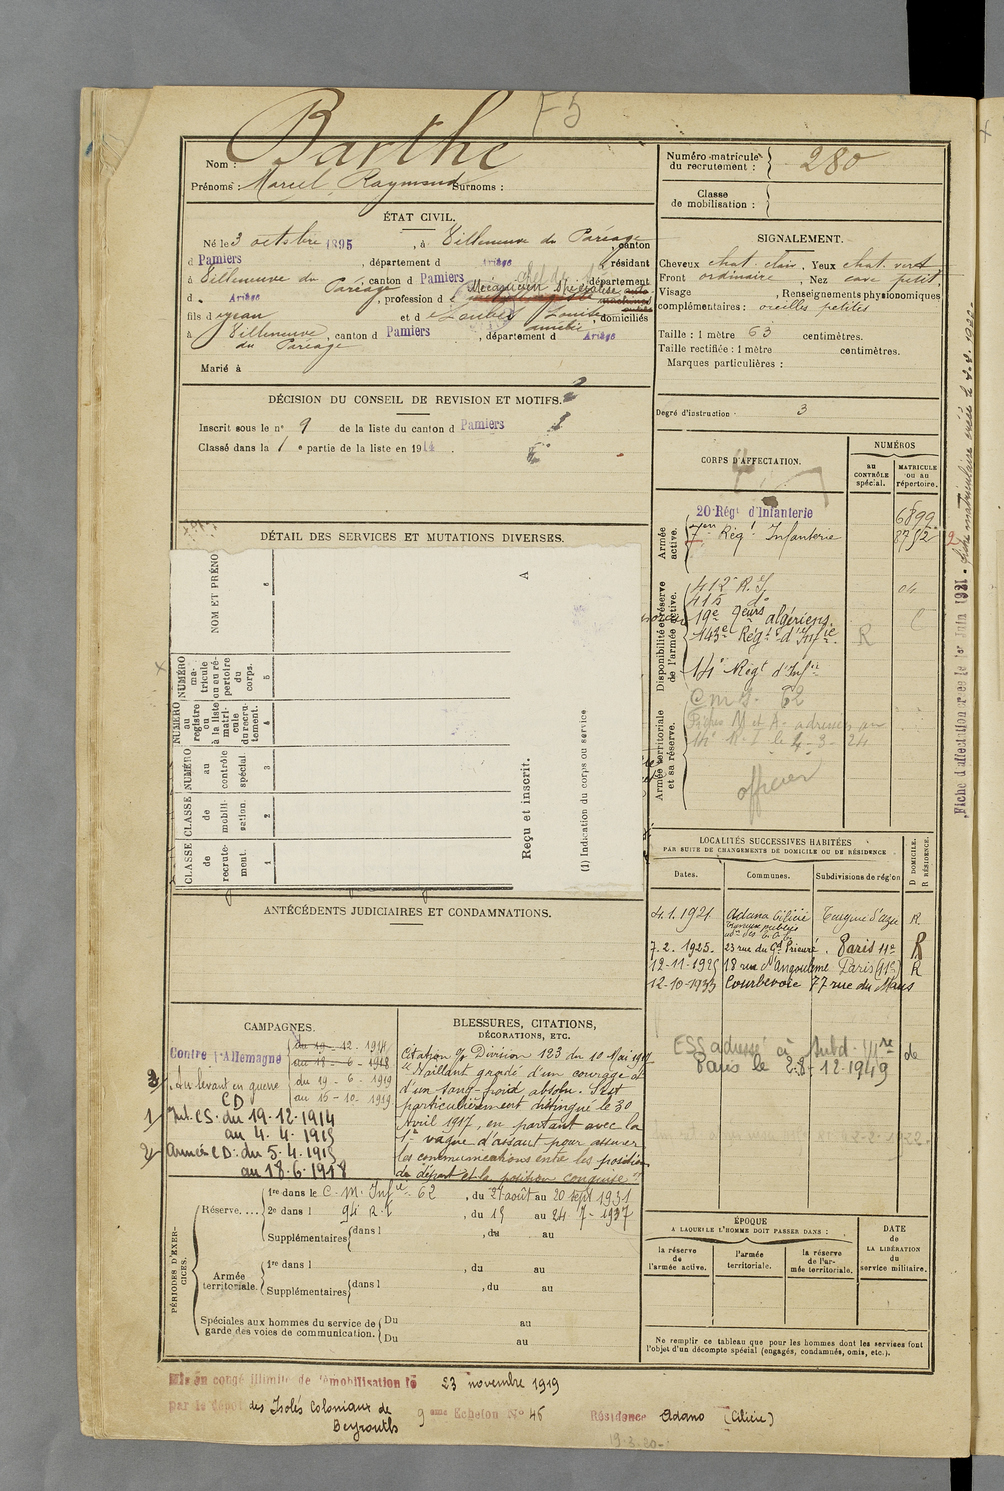 F5
Nom : Barthe
Prénoms : Marcel, Raymond Surnoms :
Numéro matricule du recrutement : 280
Classe de mobilisation :
ÉTAT CIVIL.
Né le 3 octobre 1895, à Villeneuve du Paréage canton
d Pamiers, département d Ariège résidant
à Villeneuve du Paréage, canton d Pamiers département
d Ariège, profession d Mécanicien Spécialiste auto-machines
fils d Jean et d Loubet Louise Amélie, domiciliés
à Villeneuve du Paréage, canton d Pamiers, département d Ariège
Marié à
SIGNALEMENT.
Cheveux chat. clair, Yeux chat. vert
Front ordinaire, Nez cave petit
Visage , Renseignements physionomiques
complémentaires : oreilles petites
Taille : 1 mètre 63 centimètres.
Taille rectifiée : 1 mètre centimètres.
Marques particulières :
Degré d'instruction 3
DÉCISION DU CONSEIL DE REVISION ET MOTIFS.
Inscrit sous le n° 9 de la liste du canton d Pamiers
Classé dans la 1e partie de la liste en 1914.
CORPS D'AFFECTATION.
NUMÉROS
au CONTRÔLE spécial.
MATRICULE ou au répertoire.
Armée active.
20 Régt d'Infanterie 6899
7me Régt Infanterie 8752
Disponibilité et réserve de l'armée active.
412e R.I.
415 do
19e geurs algériens.
143e Régt d'Infie. R
14e Régt d'Infie
Armée territoriale et sa réserve.
C.M.I. 62
officier
DÉTAIL DES SERVICES ET MUTATIONS DIVERSES.
NOM ET PRÉNO
6
NUMÉRO matricule ou au répertoire du corps.
5
NUMÉRO au registre ou à la liste matricule du recrutement.
4
NUMÉRO au contrôle spécial
3
CLASSE de mobilisation.
2
CLASSE de recrutement.
1
A
Reçu et inscrit.
(1) Indication du corps ou service
Fiche d'affectation créée le 1er Juin 1931
LOCALITÉS SUCCESSIVES HABITÉES
PAR SUITE DE CHANGEMENTS DE DOMICILE OU DE RÉSIDENCE
Dates.
Communes.
Subdivisions de région
D DOMICILE. R RÉSIDENCE.
4.1.1921 Adana Cilicie R
7.2.1925. 23 rue du Gd Prieuré. Paris 11e R
12-11-1925 18 rue d'Angoulême Paris (11e) R
12-10-1933 Courbevoie 77 rue du Mans
ESS adressé à Subd. de
Paris le 28-12-1949
ANTÉCÉDENTS JUDICIAIRES ET CONDAMNATIONS.
CAMPAGNES.
Contre l'Allemagne
du 19-12-1914
au 18-6-1918
Au levant en guerre du 19-6-1919
au 15-10-1919
CD
1) Int. CS. du 19.12.1914
au 4.4.1915
2) Armées CD: du 5.4.1915
au 18.6.1918
BLESSURES, CITATIONS,
DÉCORATIONS, ETC.
Citation % Division 123 du 10 Mai 1917
"Vaillant gradé d'un courage et
d'un sang-froid absolu. S'est
particulièrement distingué le 30
Avril 1917, en partant avec la
1e vague d'assaut pour assurer
les communications entre les positions
de départ et la position conquise"
PÉRIODES D'EXERCICES.
Réserve....
1re dans le C.M. Infie 62, du 27 août au 20 sept 1931
2e dans l 94 R.I, du 15 au 24 7-1937
Supplémentaires dans l , du au
Armée territoriale.
1re dans l , du au
Supplémentaires dans l , du au
Spéciales aux hommes du service de garde des voies de communication.
Du au
Du au
ÉPOQUE
A LAQUELLE L'HOMME DOIT PASSER DANS :
la réserve de l'armée active.
l'armée territoriale.
la réserve de l'armée territoriale.
DATE de LA LIBÉRATION du service militaire.
Ne remplir ce tableau que pour les hommes dont les services font
l'objet d'un décompte spécial (engagés, condamnés, omis, etc.).
Mis en congé illimité de démobilisation le 23 novembre 1919
par le dépôt des Isolés Coloniaux de Beyrouth 9eme Echelon No 46 Résidence Adano (Cilicie)
19-3-20